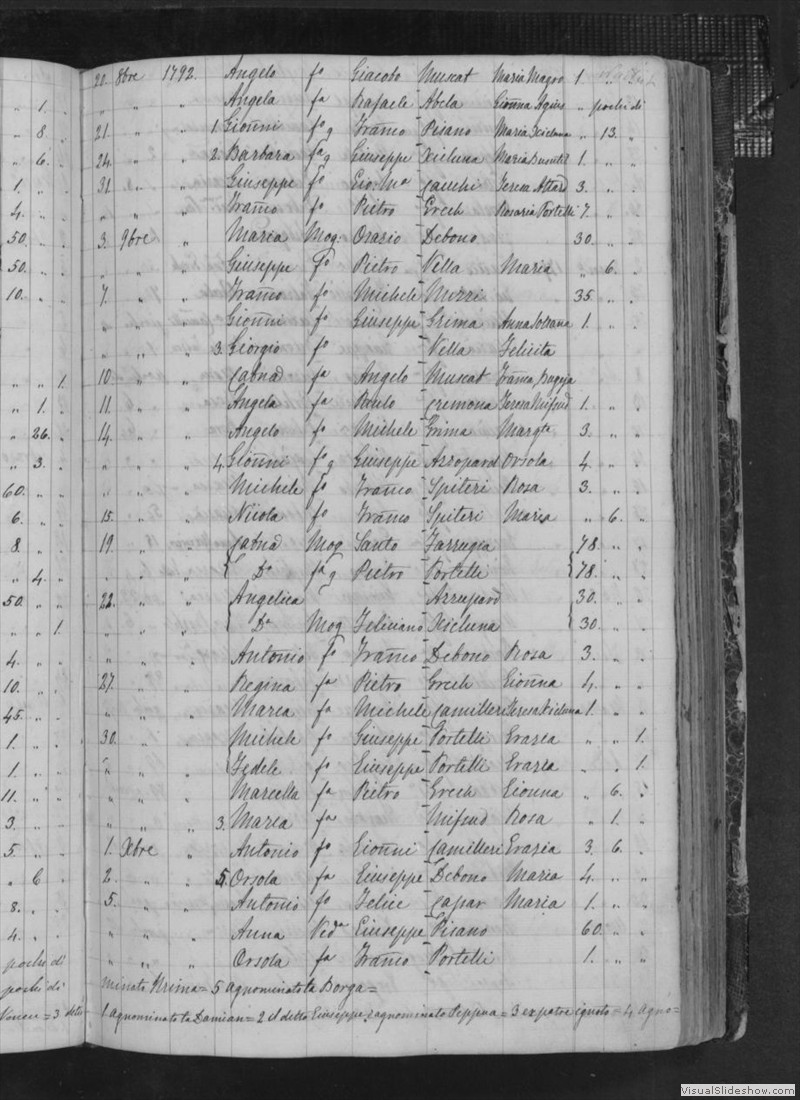 20. 8bre 1792. Angelo fo Giacobo Muscat Maria Magro 1. " "
" " " Angela fa Rafaele Abela Gionna Agius " pochi di
1. " 21. " " 1. Gionni fo g Franco Pisano Maria Xicluna " 13. "
8. " 24. " " 2. Barbara fa g Giuseppe Xicluna Maria 1. " "
6. " 31. " " Giuseppe fo Gio. Ma Caschi Teresa Attard 3. " "
1. " " " " Franco fo Pietro Grech Rosaria Portelli 7. " "
4. " 3. 9bre " Maria Mog. Orazio Debono 30. " "
50. " " " " Giuseppe fo Pietro Vella Maria " 6. "
50. " 7. " " Franco fo Michele Mizzi 35. " "
10. " " " " Gionni fo Giuseppe Grima Anna 1. " "
" " " 3. Giorgio fo Vella Felicita
" " 1. 10. " " Catna fa Angelo Muscat Franca Bugeja
" 1. " 11. " " Angela fa Paulo Cremona Teresa Mifsud 1. " "
" 26. " 14. " " Angelo fo Michele Grima Margta 3. " "
" 3. " " " " 4. Gionni fo g Giuseppe Azzopard Orsola 4. " "
60. " " " " " Michele fo Franco Spiteri Rosa 3. " "
6. " " 15. " " Nicola fo Franco Spiteri Maria " 6. "
8. " " 19. " " Catna Mog Santo Farrugia 78. " "
" 4. " " " " { Da fa g Pietro Portelli { 78. " "
50. " " 22. " " Angelica Azzupard 30. " "
" " 1. " " " { Da Mog Feliciano Xicluna { 30. " "
4. " " " " " Antonio fo Franco Debono Rosa 3. " "
10. " " 27. " " Regina fa Pietro Grech Gionna 4. " "
45. " " " " " Maria fa Michele Camilleri Teresa Xicluna 1. " "
1. " " 30. " " Michele fo Giuseppe Portelli Grazia " " 1.
1. " " " " " Fedele fo Giuseppe Portelli Grazia " " 1.
11. " " " " " Marcella fa Pietro Grech Gionna " 6. "
3. " " " " " 3. Maria fa Mifsud Rosa " 1. "
5. " " 1. Xbre " Antonio fo Gionni Camilleri Grazia 3. 6. "
" 6 " 2. " " 5. Orsola fa Giuseppe Debono Maria 4. " "
8. " " 5. " " Antonio fo Felice Capar Maria 1. " "
4. " " " " " Anna Vida Giuseppe Pisano 60. " "
pochi di " " " Orsola fa Franco Portelli 1. " "
pochi di minato Hrima = 5 agnominato ta Borga =
= 3 detu 1 agnominato ta Damian = 2 il detto Giuseppe, agnominato Peppua = 3 ex patre ignoto = 4 agno=
VisualSlideshow.com